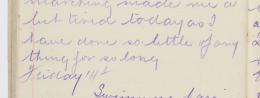 marching made me a
bit tired today as I
have done so little of any
thing for so long
Friday 14th
Swimming